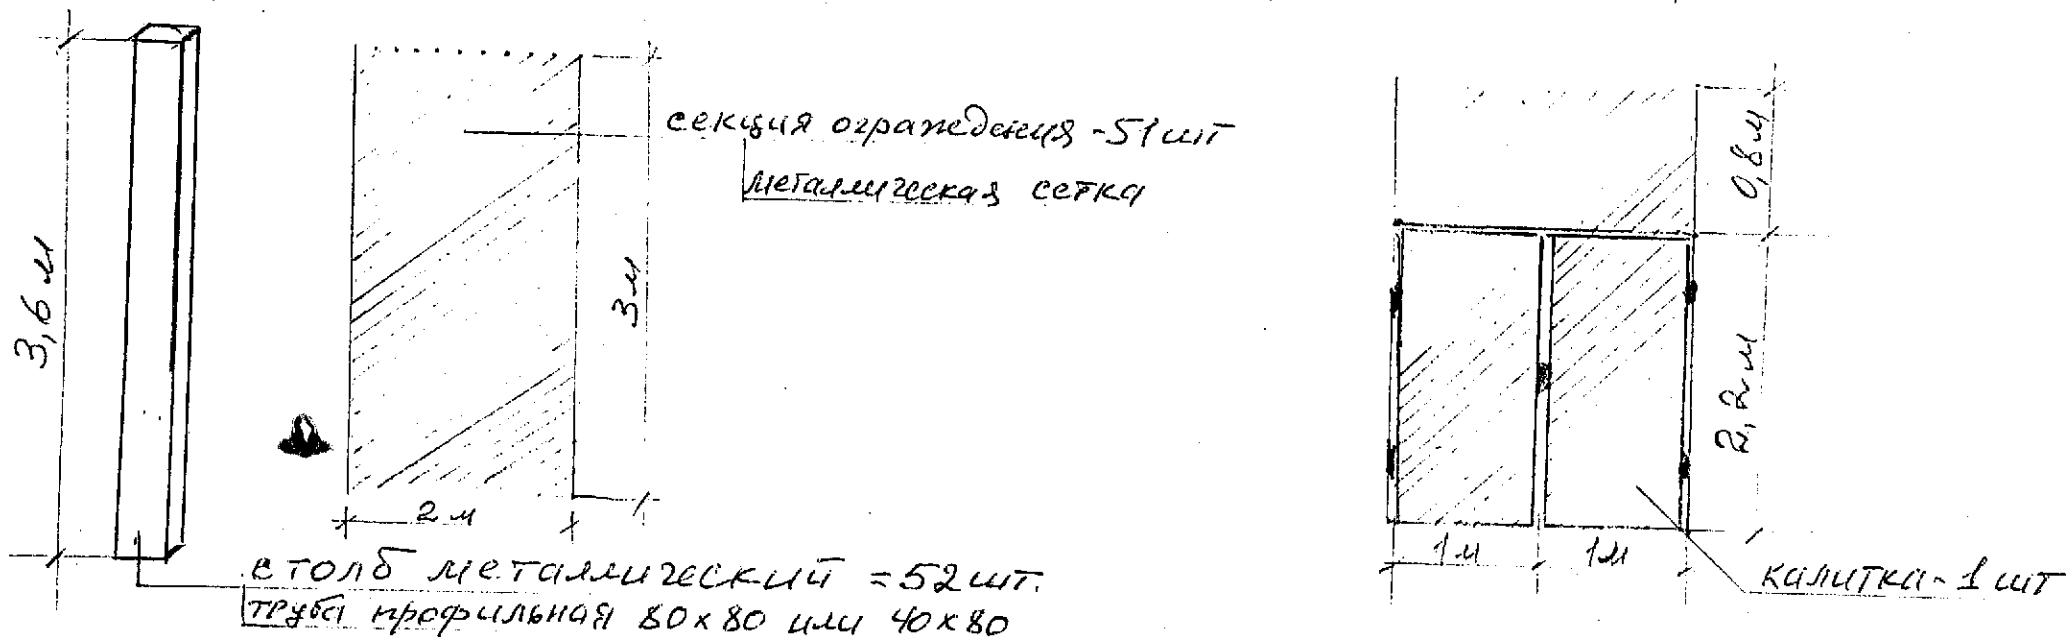 3,6 м
секция ограждения - 51 шт
металлическая сетка
3 м
2 м
столб металлический = 52 шт.
труба профильная 80х80 или 40х80
0,8 м
2,2 м
1 м
1 м
калитка - 1 шт